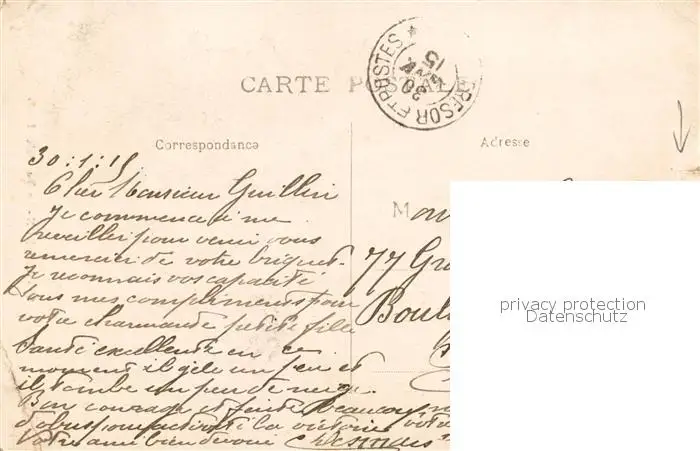 CARTE POSTALE
TRESOR ET POSTES *
30
15
Correspondance
Adresse
30:1:15
Cher Monsieur Guillin
Je commence à me
reveiller pour venir vous
remercier de votre briquet.
Je reconnais vos capacité
tous mes compliments pour
votre charmande petite fille
Santé excellente en ce
moment il gèle un peu et
il tombe un peu de neige.
Bon courage et faite beaucoup
d'obus pour la victoire votre
Votre ami bien devoué
Mon
77 Gr
Boul
privacy protection
Datenschutz